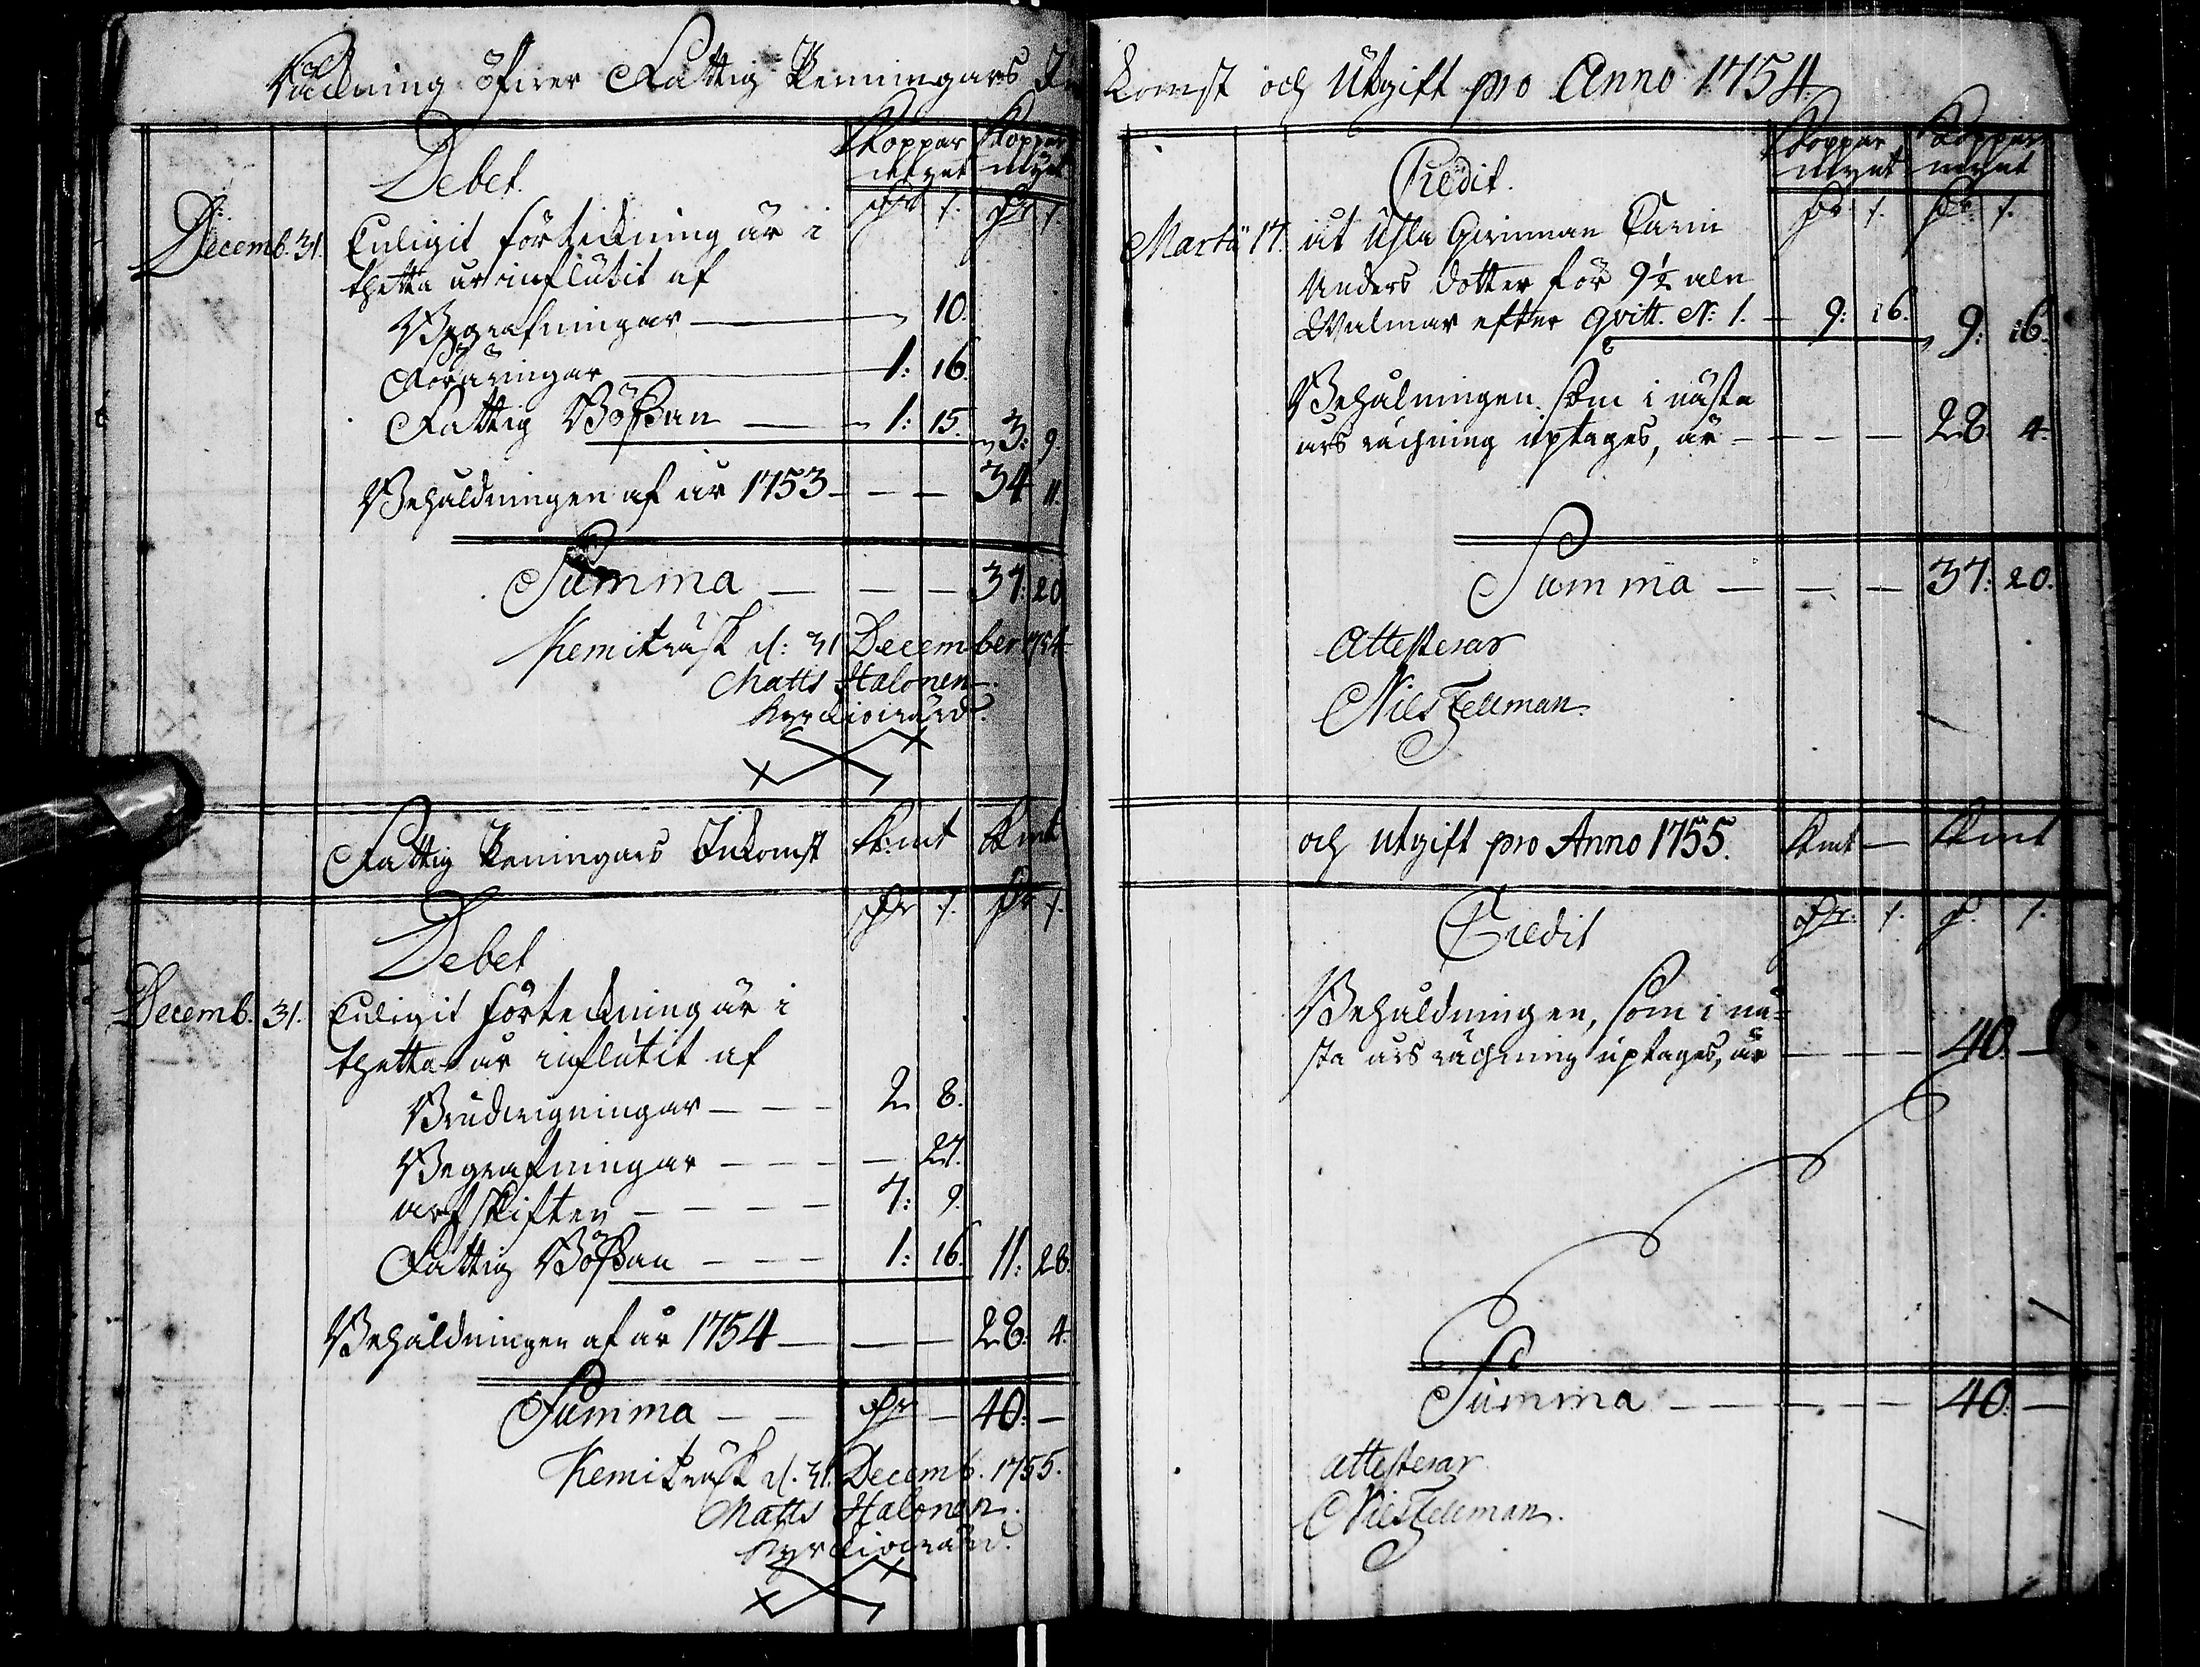 Räckning öfwer Fattig Penningars In
Debet.
Koppar mynt
Koppar mynt
Dr /.
Dr /.
Decemb. 31. Enligit förteckning är i
thetta år influtit af
Begrafningar — 10.
Föräringar — 1: 16.
Fattig Bößan — 1: 15. 3: 9.
Behåldningen af år 1753 — — — 34 11.
Summa — — — 37: 20
Kemiträsk d: 31 December 1754
Matts Halonen.
Kyrckiowärd.
Fattig Peningars Inkomst Kmt Kmt
Debet
Dr /. Dr /.
Decemb. 31. Enligit förteckning är i
thetta år influtit af
Brudwigningar — — — 2 8.
Begrafningar — — — — 27.
arfskiften — — — — 7: 9.
Fattig Bößan — — — 1: 16. 11: 28.
Behåldningen af år 1754 — — — 28: 4.
Summa — — Dr — 40: —
Kemiträsk d. 31. Decemb. 1755.
Matts Halonen.
Kyrckiowärd.
komst och Utgift pro Anno 1754.
Credit.
Koppar mynt
Koppar mynt
Dr /.
Dr /.
Martii 17. åt Usla Qwinnan Carin
Anders dotter för 9½ aln
Walmar efter qvitt. N: 1. — 9: 16. 9: 16.
Behålningen som i nästa
års räckning uptages, är — — — — 28 4.
Summa — — — 37: 20.
Attesterar
Nils Fellman.
och utgift pro Anno 1755. Kmt — Kmt
Credit
Dr. /. Dr. /.
Behåldningen, som i nä=
sta års räckning uptages, är — — — 40. —
Summa — — — — — 40. —
attesterar
Nils Fellman.